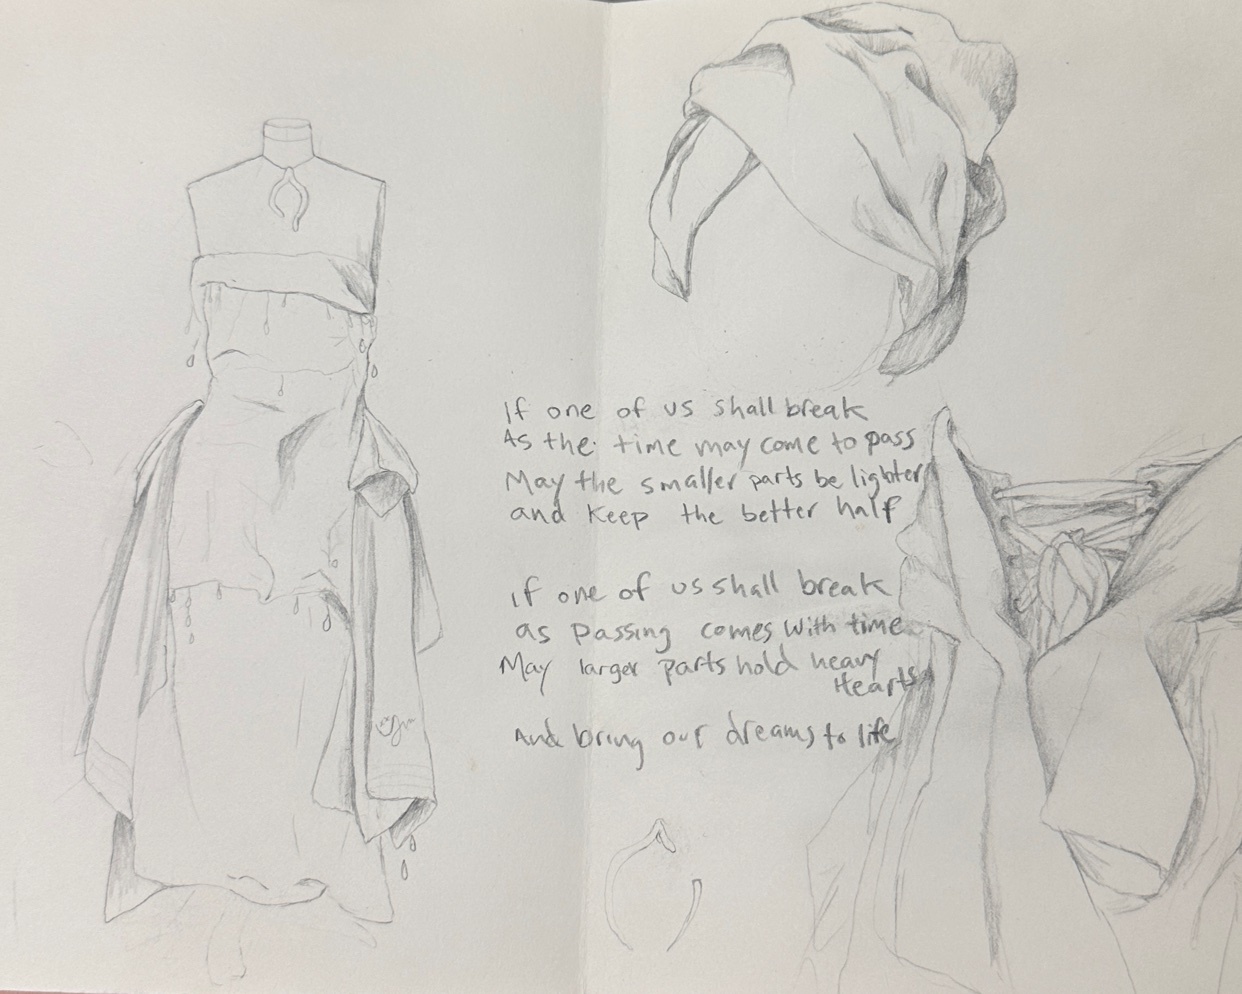 If one of us shall break
As the time may come to pass
May the smaller parts be lighter
and keep the better half
if one of us shall break
as passing comes with time
May larger parts hold heavy
Hearts
And bring our dreams to life